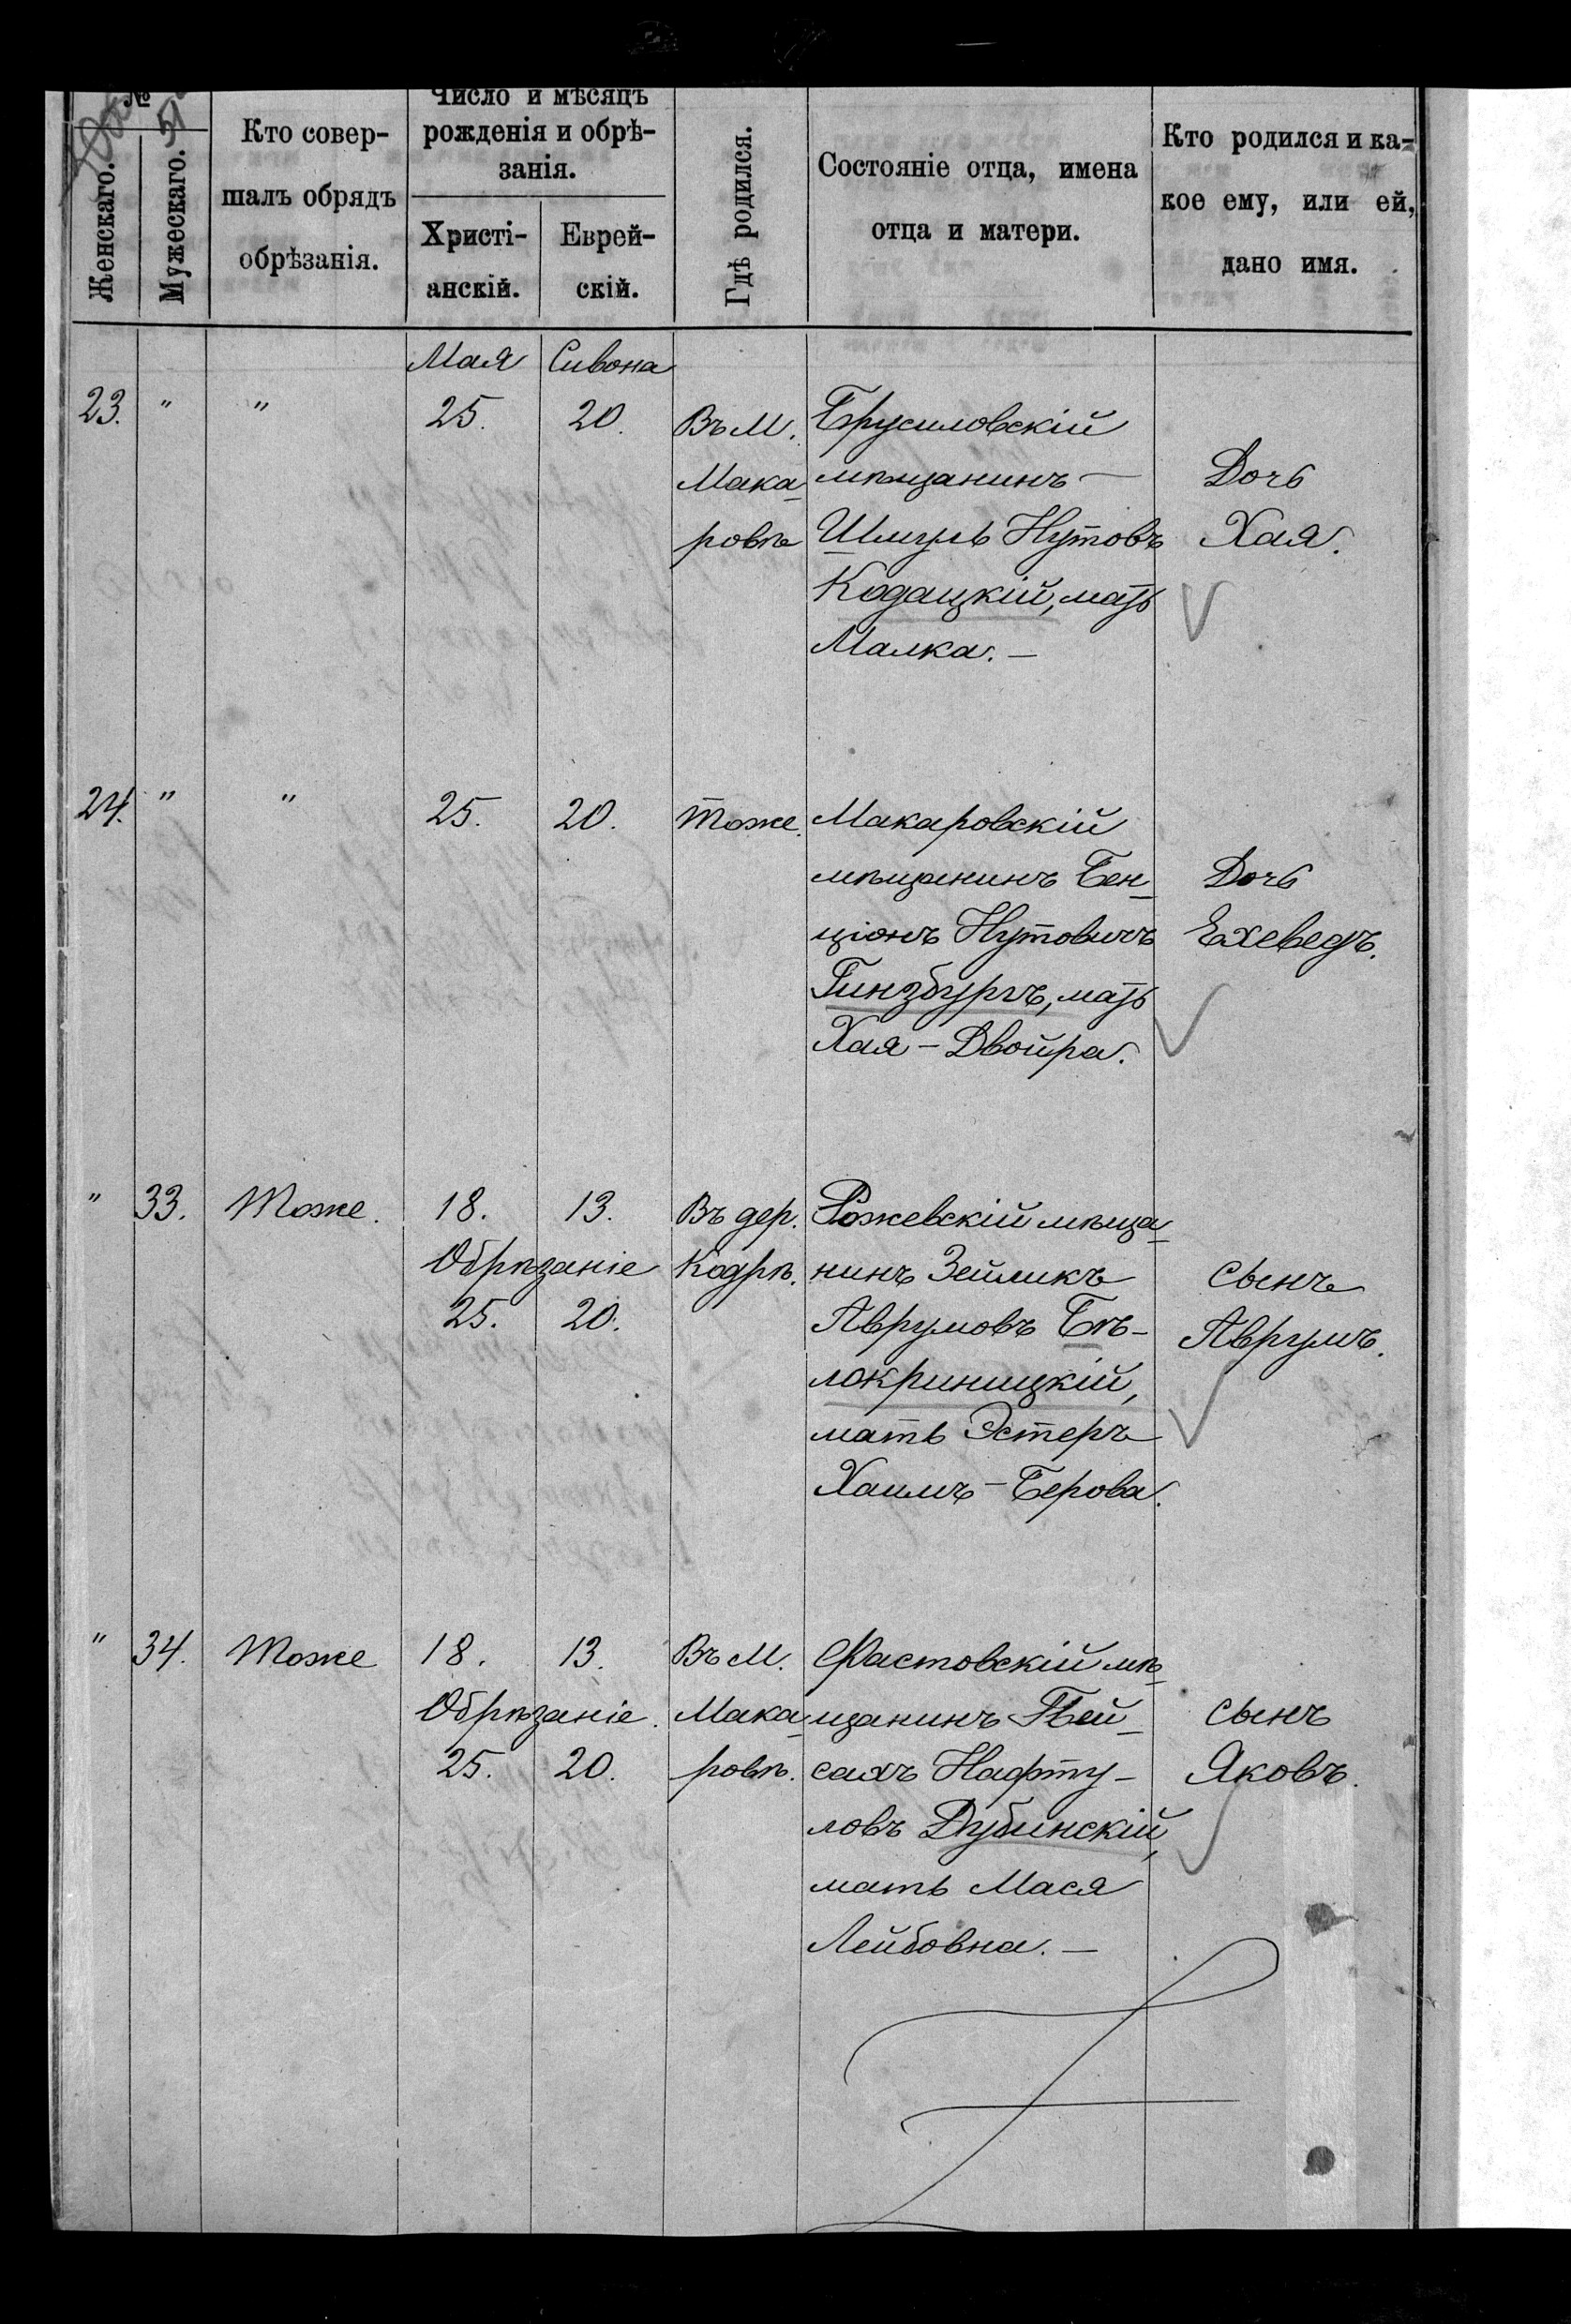 №
Женскаго.
Мужескаго.
51
Кто совер-
шалъ обрядъ
обрѣзанія.
Число и мѣсяцъ
рожденія и обрѣ-
занія.
Христі-
анскій.
Еврей-
скій.
Гдѣ родился.
Состояніе отца, имена
отца и матери.
Кто родился и ка-
кое ему, или ей,
дано имя.
Мая
Сивона
23.
"
"
25.
20.
Въ М.
Мака-
ровѣ
Брусиловскій
мѣщанинъ —
Шмуль Нутовъ
Кодацкій, мать
Малка. —
Дочь
Хая.
24.
"
"
25.
20.
тоже.
Макаровскій
мѣщанинъ Бен-
ціонъ Нутовичъ
Гинзбургъ, мать
Хая - Двойра.
Дочь
Ехеведъ.
"
33.
Тоже.
18.
13.
Обрѣзаніе
25.
20.
Въ дер.
Кодрѣ.
Рожевскій мѣща-
нинъ Зейликъ
Аврумовъ Бѣ-
локриницкій,
мать Эстеръ
Хаимъ - Берова.
сынъ
Аврумъ.
"
34.
Тоже
18.
13.
Обрѣзаніе.
25.
20.
Въ М.
Мака-
ровѣ.
Фастовскій мѣ-
щанинъ Пей-
сахъ Нафту-
ловъ Дубинскій,
мать Мася
Лейбовна. —
сынъ
Яковъ.